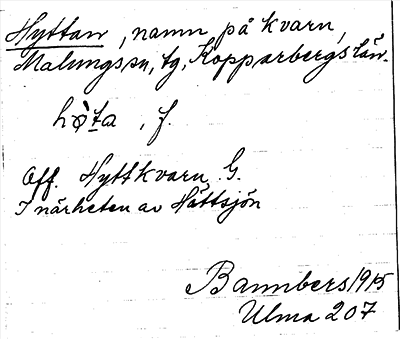 Hyttan, namn på kvarn,
Malungs sn, tg, Kopparbergs län.
hø̀ta, f.
Off. Hyttkvarn. G.
I närheten av Håttsjön
Bannbers 1915
Ulma 207